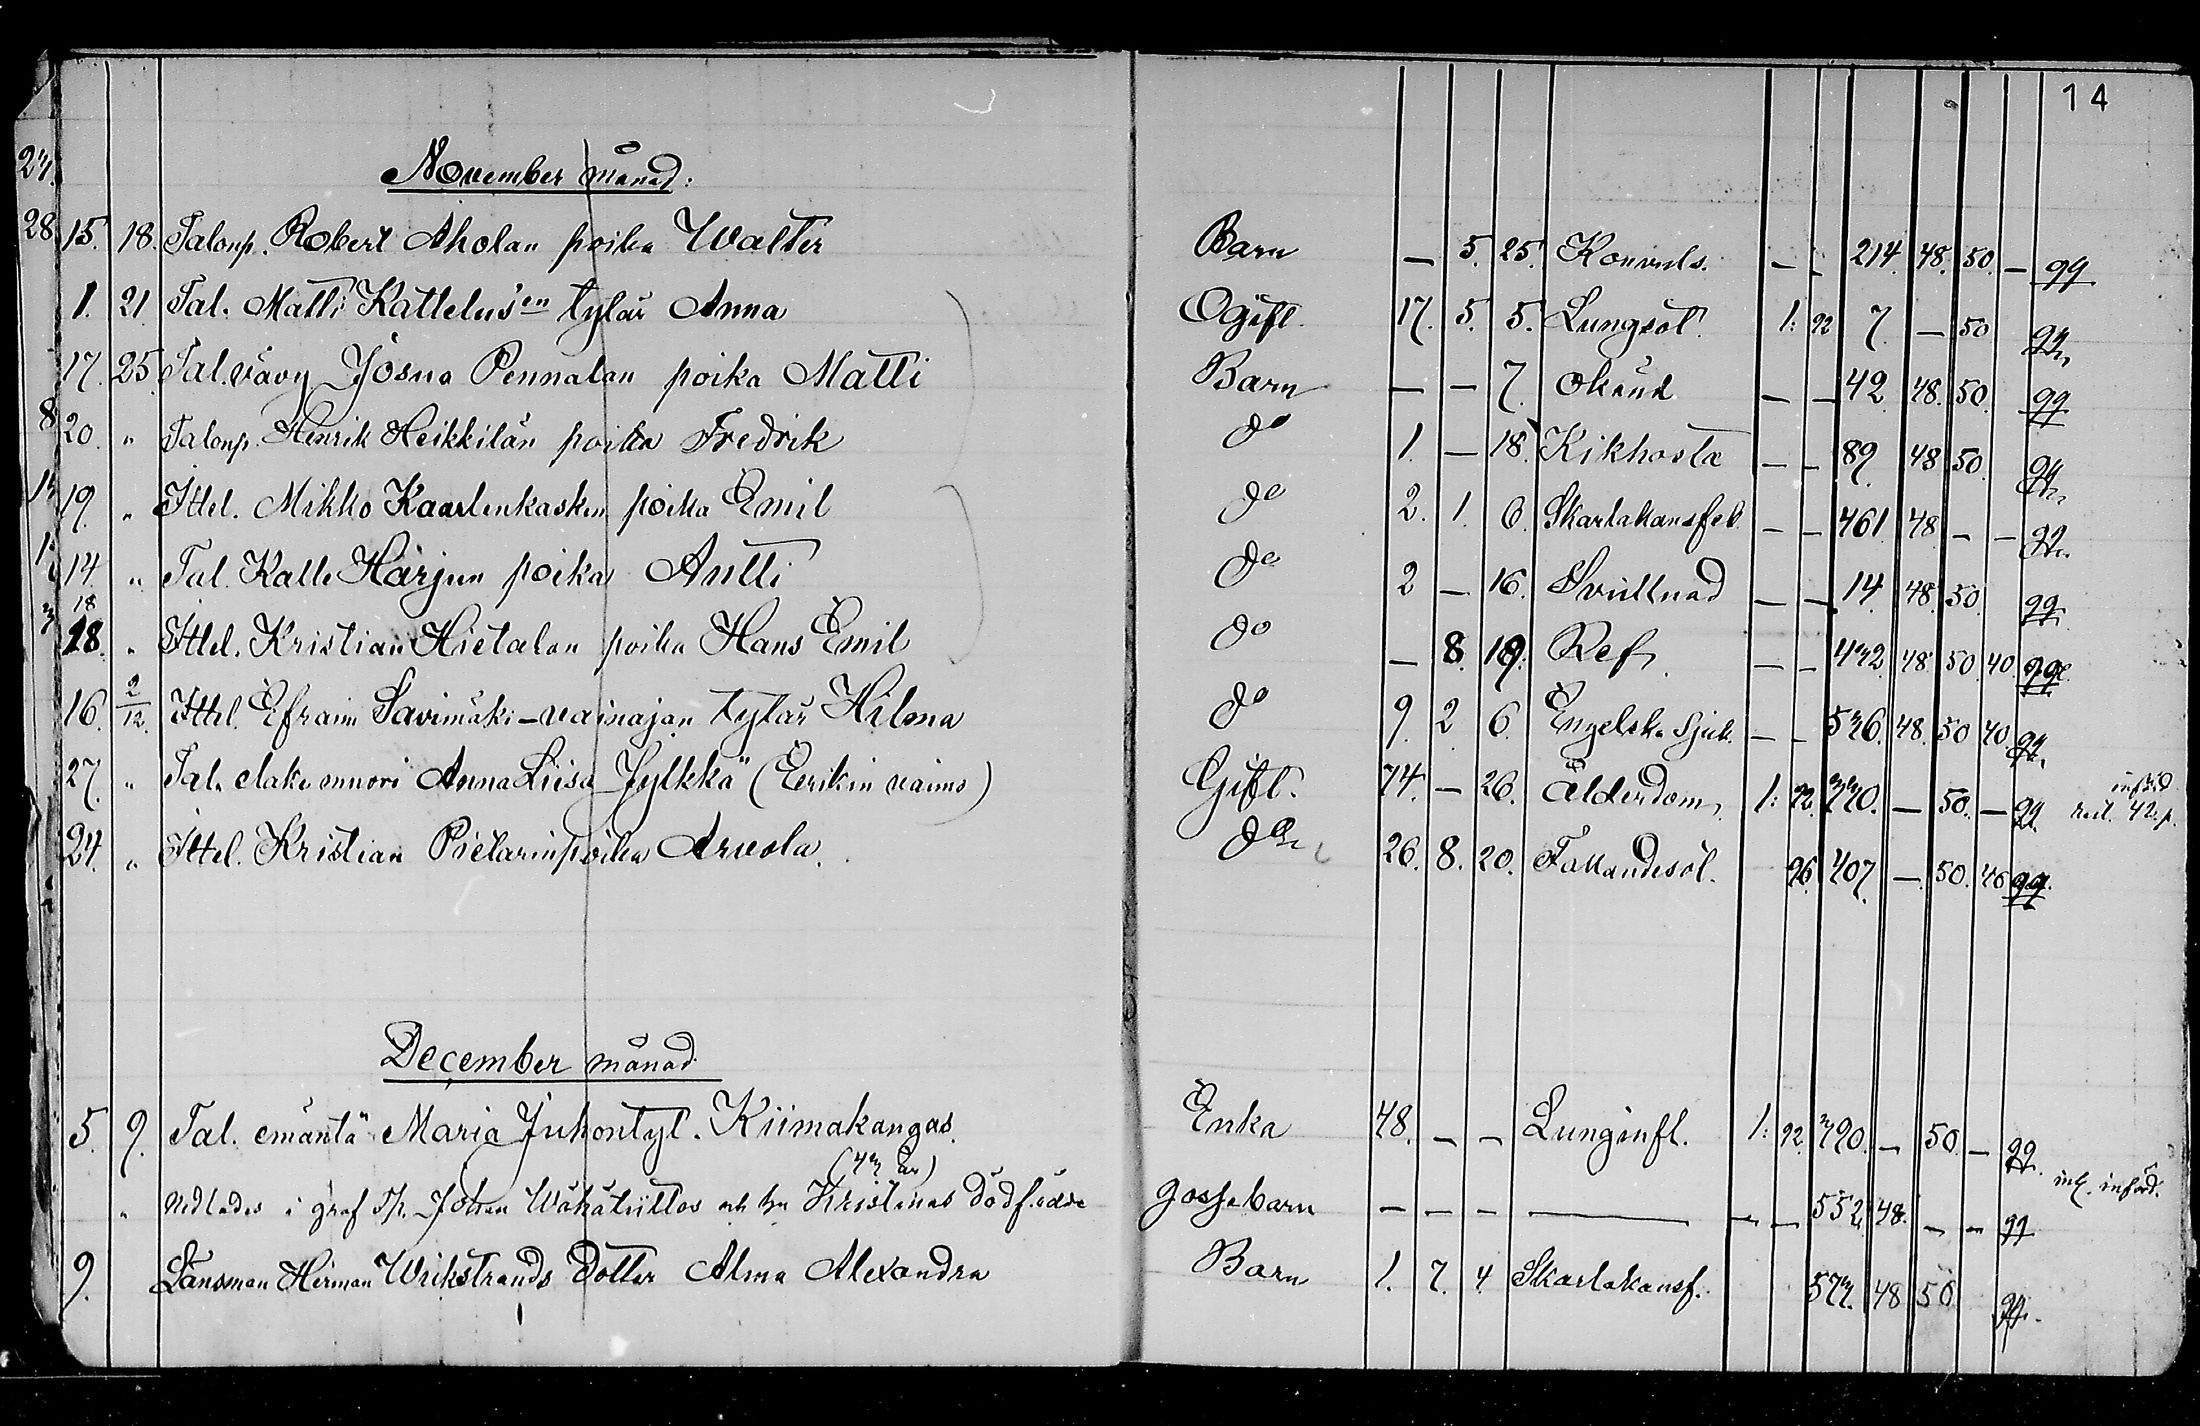 14
24.
November månad:
28 15. 18. Talonp. Robert Aholan poika Walter Barn — 5. 25. Konvuls. — — 214. 48. 50. —
1. 21 Tal. Matti Kattelus'en tytär Anna Ogift. 17. 5. 5. Lungsot. 1: 92 7. — 50
17. 25 Tal. vävy Josua Pennalan poika Matti Barn — — 7. okänd — — 42 48. 50.
8 20. " Talonp. Henrik Heikkilän poika Fredrik do 1. — 18. Kikhosta — — 89. 48 50.
19. " Ittel. Mikko Kaarlenkasken poika Emil do 2. 1. 6. Skarlakansfeb. — — 461 48 — —
14. " Tal. Kalle Harjun poika Antti do 2 — 16. Svullnad — — 14. 48. 50.
18
18. " Ittel. Kristian Hietalan poika Hans Emil do — 8. 19. Ref. — — 432 48. 50 40.
16. 2/12. Ittel. Efraim Savimäki-vainajan tytär Hilma do 9. 2 6. Engelska sjuk. — — 536. 48. 50 40.
27. " Tal. elake muori Anna Liisa Jylkkä (Eerikin vaimo) Gift. 74. — 26. Ålderdom, 1: 92. 330. — 50. — införd
24. " Ittel. Kristian Pietarinpoika Arvola. 26. 8. 20. Fallandesot. 96. 407. — 50. 40
December månad
5. 9. Tal. emäntä Maria Juhontyt. Kiimakangas. Enka 48. — — Lunginfl. 1: 92. 390. — 50. —
(43 år)
" Nedlades i graf Johan Wähätiittos och Kristinas dödfödde gossebarn — — — — — — 552, 48. — — införd.
9. Länsman Herman Wrikstrands Dotter Alma Alexandra Barn 1. 7. 4 Skarlakansf. 573. 48 50